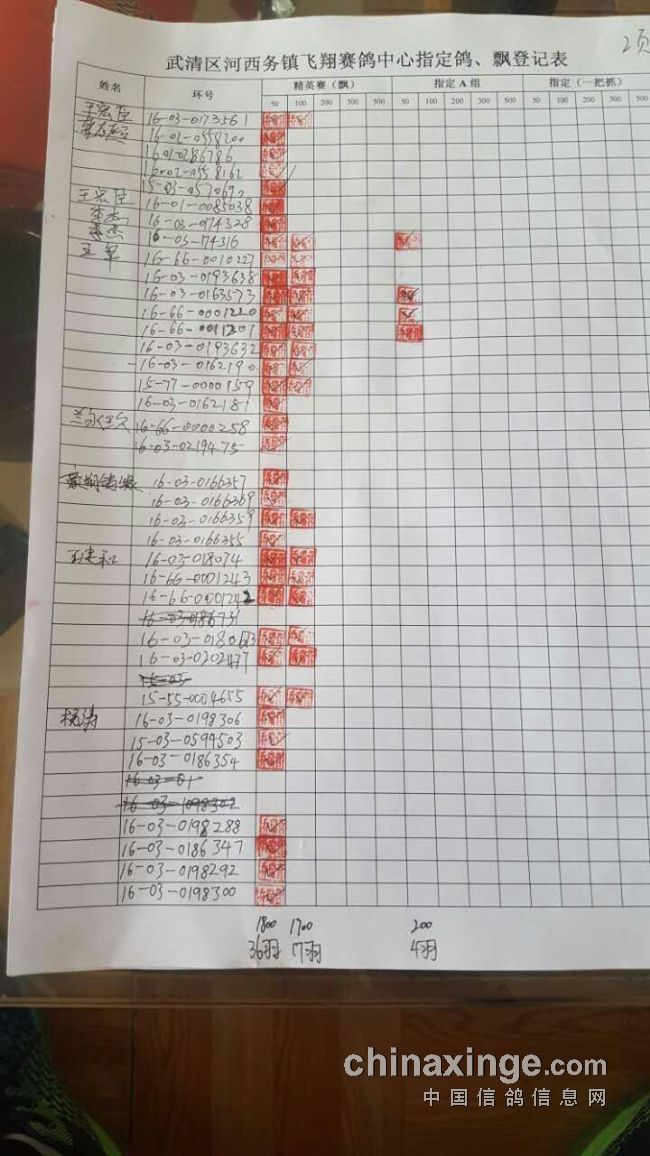 2页
武清区河西务镇飞翔赛鸽中心指定鸽、飘登记表
姓名 环号 精英赛（飘） 指定A组 指定（一把抓）
50 100 200 300 500 50 100 200 300 500 50 100 200 300 500
王宏臣 16-03-0173561
16-02-0558200
1601-0286786
16-02-0558162
15-03-0570692
王宏臣 16-01-0085038
李杰 16-03-0174328
李杰 16-03-74316
王军 16-66-0010227
16-03-0193638
16-03-0163573
16-66-0001220
16-66-0011201
16-03-0193632
16-03-0162190
15-77-0000159
16-03-0162181
兰永久 16-66-0000258
16-03-0219475
16-03-0166357
16-03-0166369
16-03-0166359
16-03-0166355
王建和 16-03-018074
16-66-0001243
16-66-0001242
16-03-0186731
16-03-0180613
16-03-0202477
16-03
15-55-0004655
杨涛 16-03-0198306
15-03-0599503
16-03-0186354
16-03-01
16-03-1098302
16-03-0198288
16-03-0186347
16-03-0198292
16-03-0198300
1800 1700 200
36羽 17羽 4羽
chinaxinge.com
中国信鸽信息网